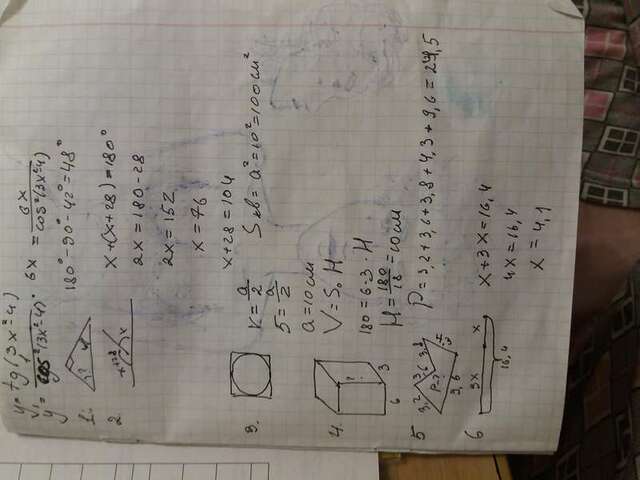 y = tg(3x²-4)
y' = 1/cos²(3x²-4) · 6x = 6x/cos²(3x²-4)
1. ? 42° 180° - 90° - 42° = 48°
2. x+28 x x + (x+28) = 180°
2x = 180 - 28
2x = 152
x = 76
x+28 = 104
3. r = a/2 Sкв = a² = 10² = 100 см²
5 = a/2
a = 10 см
4. ? 6 3 V = Sо H
180 = 6·3·H
H = 180/18 = 10 см
5 3,2 3,6 3,8 4,3 9,6 P-? P = 3,2 + 3,6 + 3,8 + 4,3 + 9,6 = 24,5
6 3x x 16,4 x + 3x = 16,4
4x = 16,4
x = 4,1